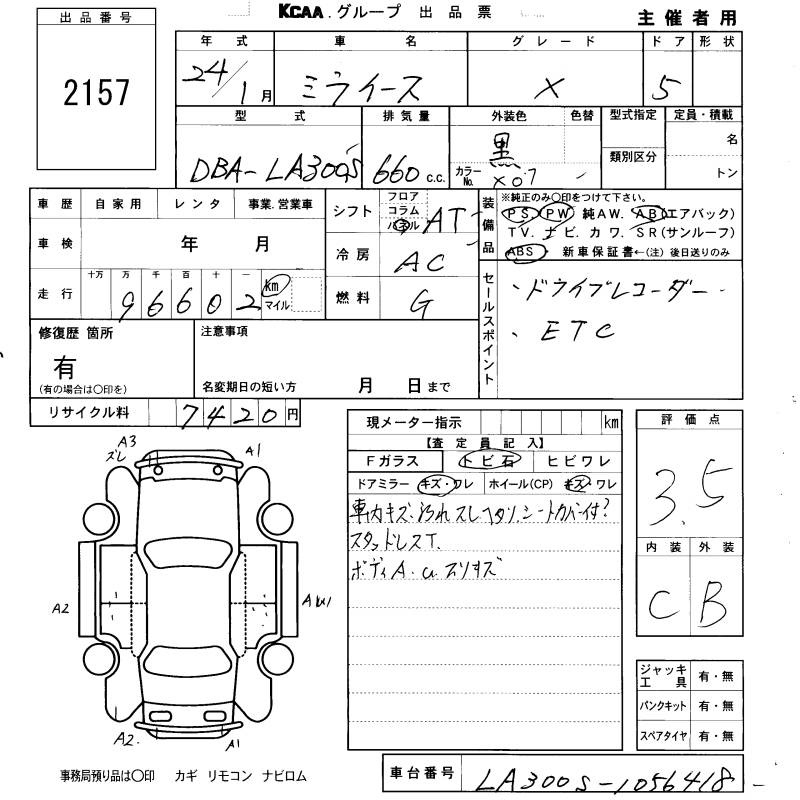 KCAA グループ 出品票
主催者用
出品番号
2157
年式 車名 グレード ドア 形状
24/1月 ミライース X 5
型式 排気量 外装色 色替 型式指定 定員・積載
DBA-LA300S 660 c.c. 黒 名
カラーNo. X07 類別区分 トン
車歴 自家用 レンタ 事業.営業車
シフト フロア コラム パネル AT
装備品 ※純正のみ〇印をつけて下さい。
PS PW 純AW. AB(エアバック)
TV. ナビ. カワ. SR(サンルーフ)
ABS 新車保証書←(注) 後日送りのみ
車検 年 月
冷房 AC
走行 十万 万 千 百 十 一
96602 km マイル
燃料 G
セールスポイント
・ドライブレコーダー
・ETC
修復歴 箇所 注意事項
有
(有の場合は〇印を) 名変期日の短い方 月 日まで
リサイクル料 7420円
現メーター指示 km
【査定員記入】
Fガラス トビ石 ヒビワレ
ドアミラー キズ・ワレ ホイール(CP) キズ・ワレ
車内キズ.汚れスレヘタリ.シートカバー付?
スタッドレスT.
ボディA.U.スリキズ
評価点
3.5
内装 外装
C B
A3 ズレ A1
A2
A2. A1
ジャッキ工具 有・無
パンクキット 有・無
スペアタイヤ 有・無
事務局預り品は〇印 カギ リモコン ナビロム
車台番号 LA300S-1056418